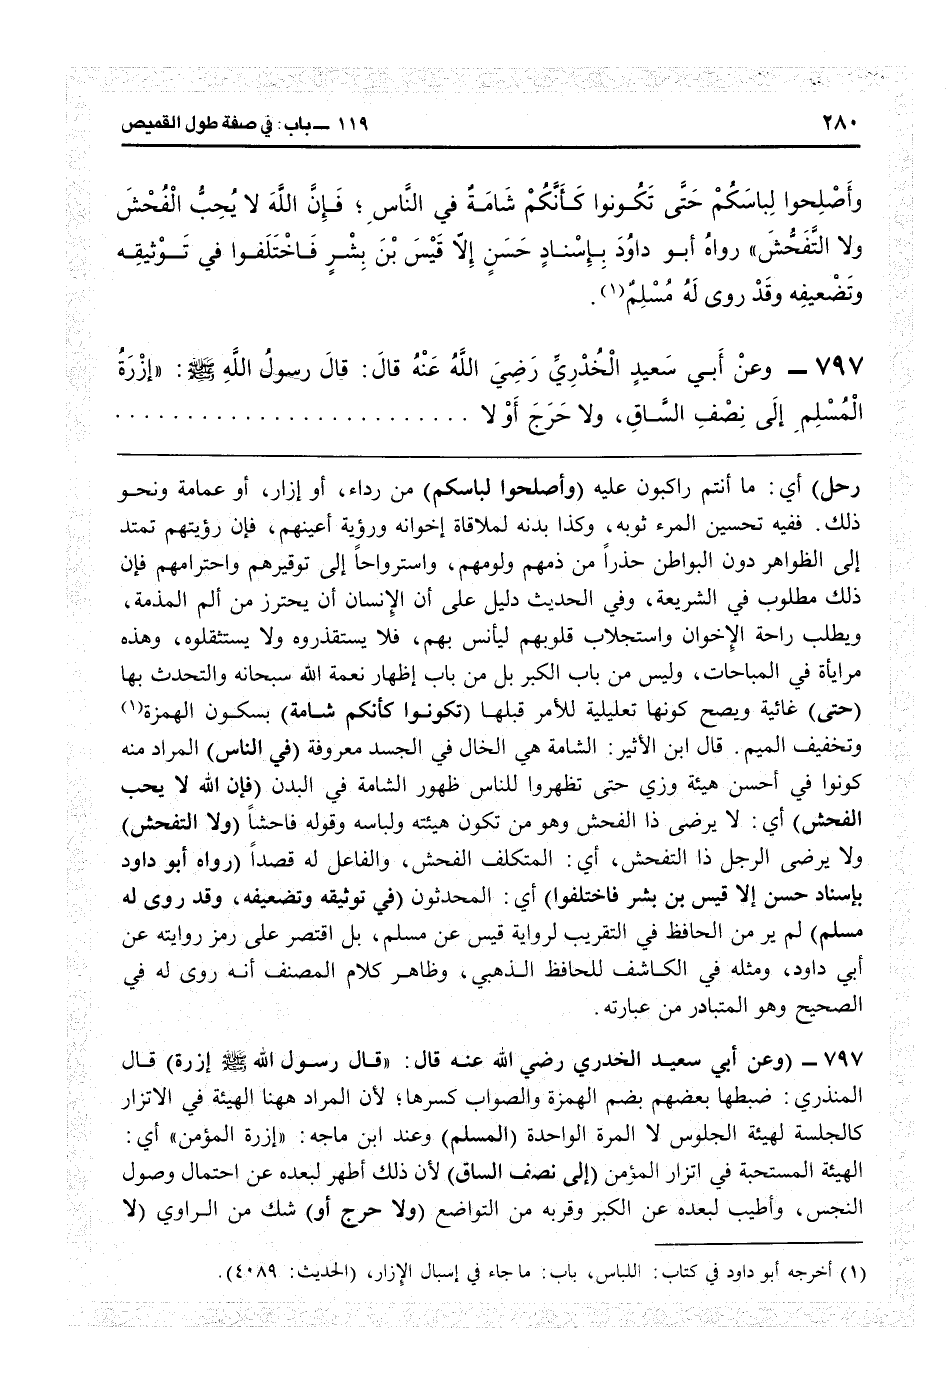 ٢٨٠
١١٩ ــ باب: في صفة طول القميص
وأَصْلِحوا لِباسَكُمْ حَتَّى تَكُونوا كَأَنَّكُمْ شَامَةٌ في النَّاسِ؛ فَإِنَّ اللَّهَ لا يُحِبُّ الْفُحْشَ
ولا التَّفَحُّشَ» رواهُ أبو داوُدَ بِإِسْنادٍ حَسَنٍ إلاّ قَيْسَ بْنَ بِشْرٍ فَاخْتَلَفوا في تَوْثيقِه
وتَضْعيفِه وقَدْ روى لَهُ مُسْلِمٌ(١).
٧٩٧ ــ وعنْ أَبي سَعيدٍ الْخُدْريِّ رَضِيَ اللَّهُ عَنْهُ قالَ: قالَ رسولُ اللَّهِ ﷺ: «إِزْرَةُ
الْمُسْلِمِ إلَى نِصْفِ السَّاقِ، ولا حَرَجَ أَوْ لا . . . . . . . . . . . . . . . . . . . . . . . . .
رحل) أي: ما أنتم راكبون عليه (وأصلحوا لباسكم) من رداء، أو إزار، أو عمامة ونحو
ذلك. ففيه تحسين المرء ثوبه، وكذا بدنه لملاقاة إخوانه ورؤية أعينهم، فإن رؤيتهم تمتد
إلى الظواهر دون البواطن حذراً من ذمهم ولومهم، واسترواحاً إلى توقيرهم واحترامهم فإن
ذلك مطلوب في الشريعة، وفي الحديث دليل على أن الإِنسان أن يحترز من ألم المذمة،
ويطلب راحة الإِخوان واستجلاب قلوبهم ليأنس بهم، فلا يستقذروه ولا يستثقلوه، وهذه
مرايأة في المباحات، وليس من باب الكبر بل من باب إظهار نعمة الله سبحانه والتحدث بها
(حتى) غائية ويصح كونها تعليلية للأمر قبلها (تكونوا كأنكم شامة) بسكون الهمزة(١)
وتخفيف الميم. قال ابن الأثير: الشامة هي الخال في الجسد معروفة (في الناس) المراد منه
كونوا في أحسن هيئة وزي حتى تظهروا للناس ظهور الشامة في البدن (فإن الله لا يحب
الفحش) أي: لا يرضى ذا الفحش وهو من تكون هيئته ولباسه وقوله فاحشاً (ولا التفحش)
ولا يرضى الرجل ذا التفحش، أي: المتكلف الفحش، والفاعل له قصداً (رواه أبو داود
بإسناد حسن إلا قيس بن بشر فاختلفوا) أي: المحدثون (في توثيقه وتضعيفه، وقد روى له
مسلم) لم ير من الحافظ في التقريب لرواية قيس عن مسلم، بل اقتصر على رمز روايته عن
أبي داود، ومثله في الكاشف للحافظ الذهبي، وظاهر كلام المصنف أنه روى له في
الصحيح وهو المتبادر من عبارته.
٧٩٧ ــ (وعن أبي سعيد الخدري رضي الله عنه قال: «قال رسول الله ﷺ إزرة) قال
المنذري: ضبطها بعضهم بضم الهمزة والصواب كسرها؛ لأن المراد ههنا الهيئة في الاتزار
كالجلسة لهيئة الجلوس لا المرة الواحدة (المسلم) وعند ابن ماجه: «إزرة المؤمن» أي:
الهيئة المستحبة في اتزار المؤمن (إلى نصف الساق) لأن ذلك أطهر لبعده عن احتمال وصول
النجس، وأطيب لبعده عن الكبر وقربه من التواضع (ولا حرج أو) شك من الراوي (لا
(١) أخرجه أبو داود في كتاب: اللباس، باب: ما جاء في إسبال الإزار، (الحديث: ٤٠٨٩).